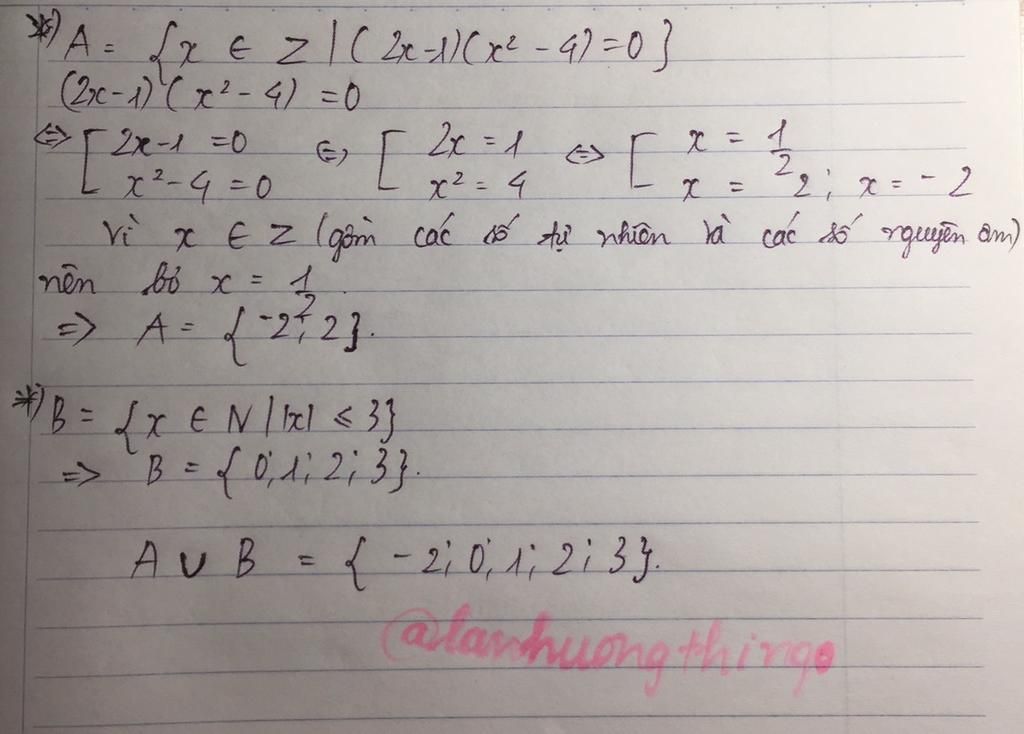 *) A = { x ∈ Z | ( 2x-1)( x² - 4) = 0 }
(2x-1) ( x² - 4) = 0
⇔ [ 2x-1 = 0 ⇔ [ 2x = 1 ⇔ [ x = 1/2
x² - 4 = 0 x² = 4 x = 2 ; x = - 2
Vì x ∈ Z (gồm các số tự nhiên và các số nguyên âm)
nên bỏ x = 1/2.
=> A = { -2 ; 2 }.
*) B = { x ∈ N | |x| ≤ 3 }
=> B = { 0 ; 1 ; 2 ; 3 }.
A ∪ B = { - 2 ; 0 ; 1 ; 2 ; 3 }.
@lanhuongthingo